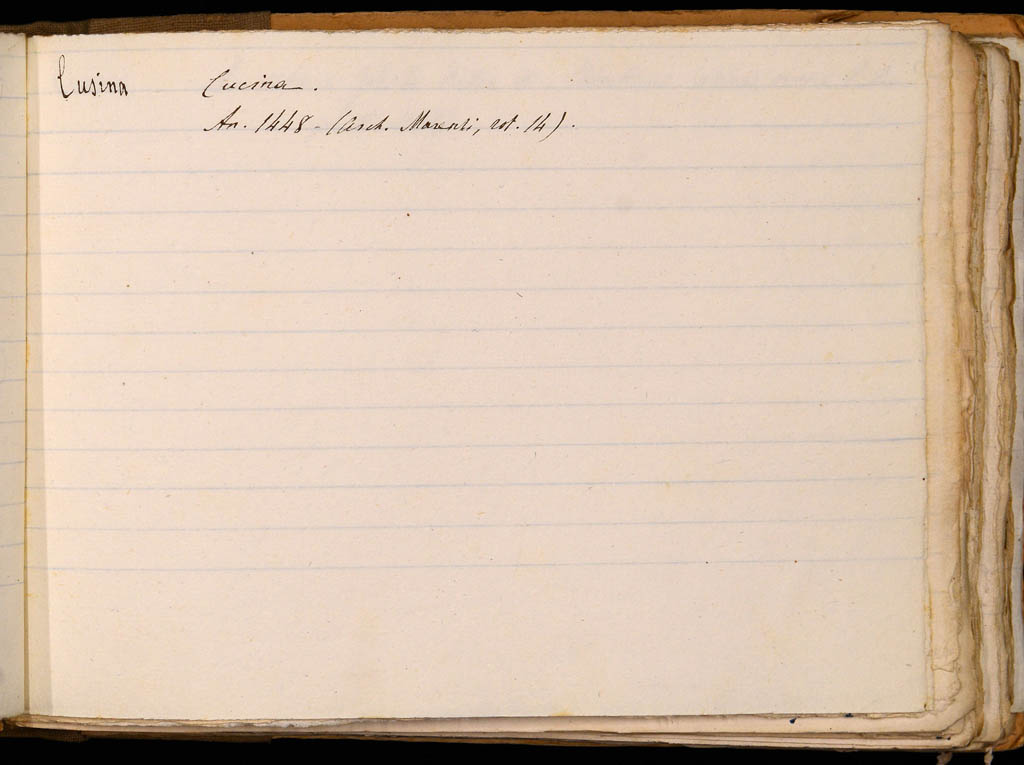 Cusina Cucina.
An. 1448 - (Arch. Marenzi, rot. 14).